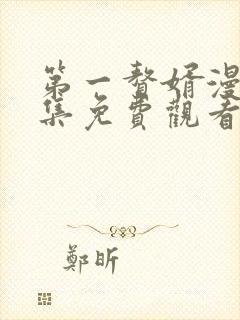 第一贅婿漫
集免費觀看
鄭昕